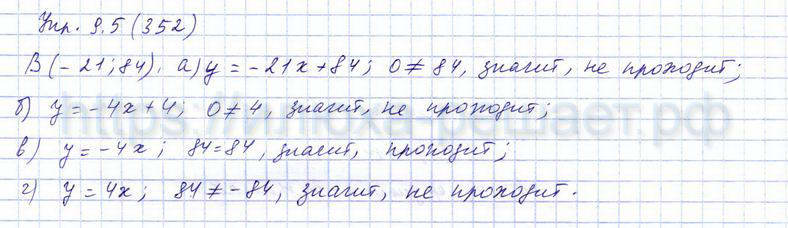 Упр. 9.5 (352)
В (-21; 84). а) y = -21x + 84; 0 ≠ 84, значит, не проходит;
б) y = -4x + 4; 0 ≠ 4, значит, не проходит;
в) y = -4x; 84 = 84, значит, проходит;
г) y = 4x; 84 ≠ -84, значит, не проходит.